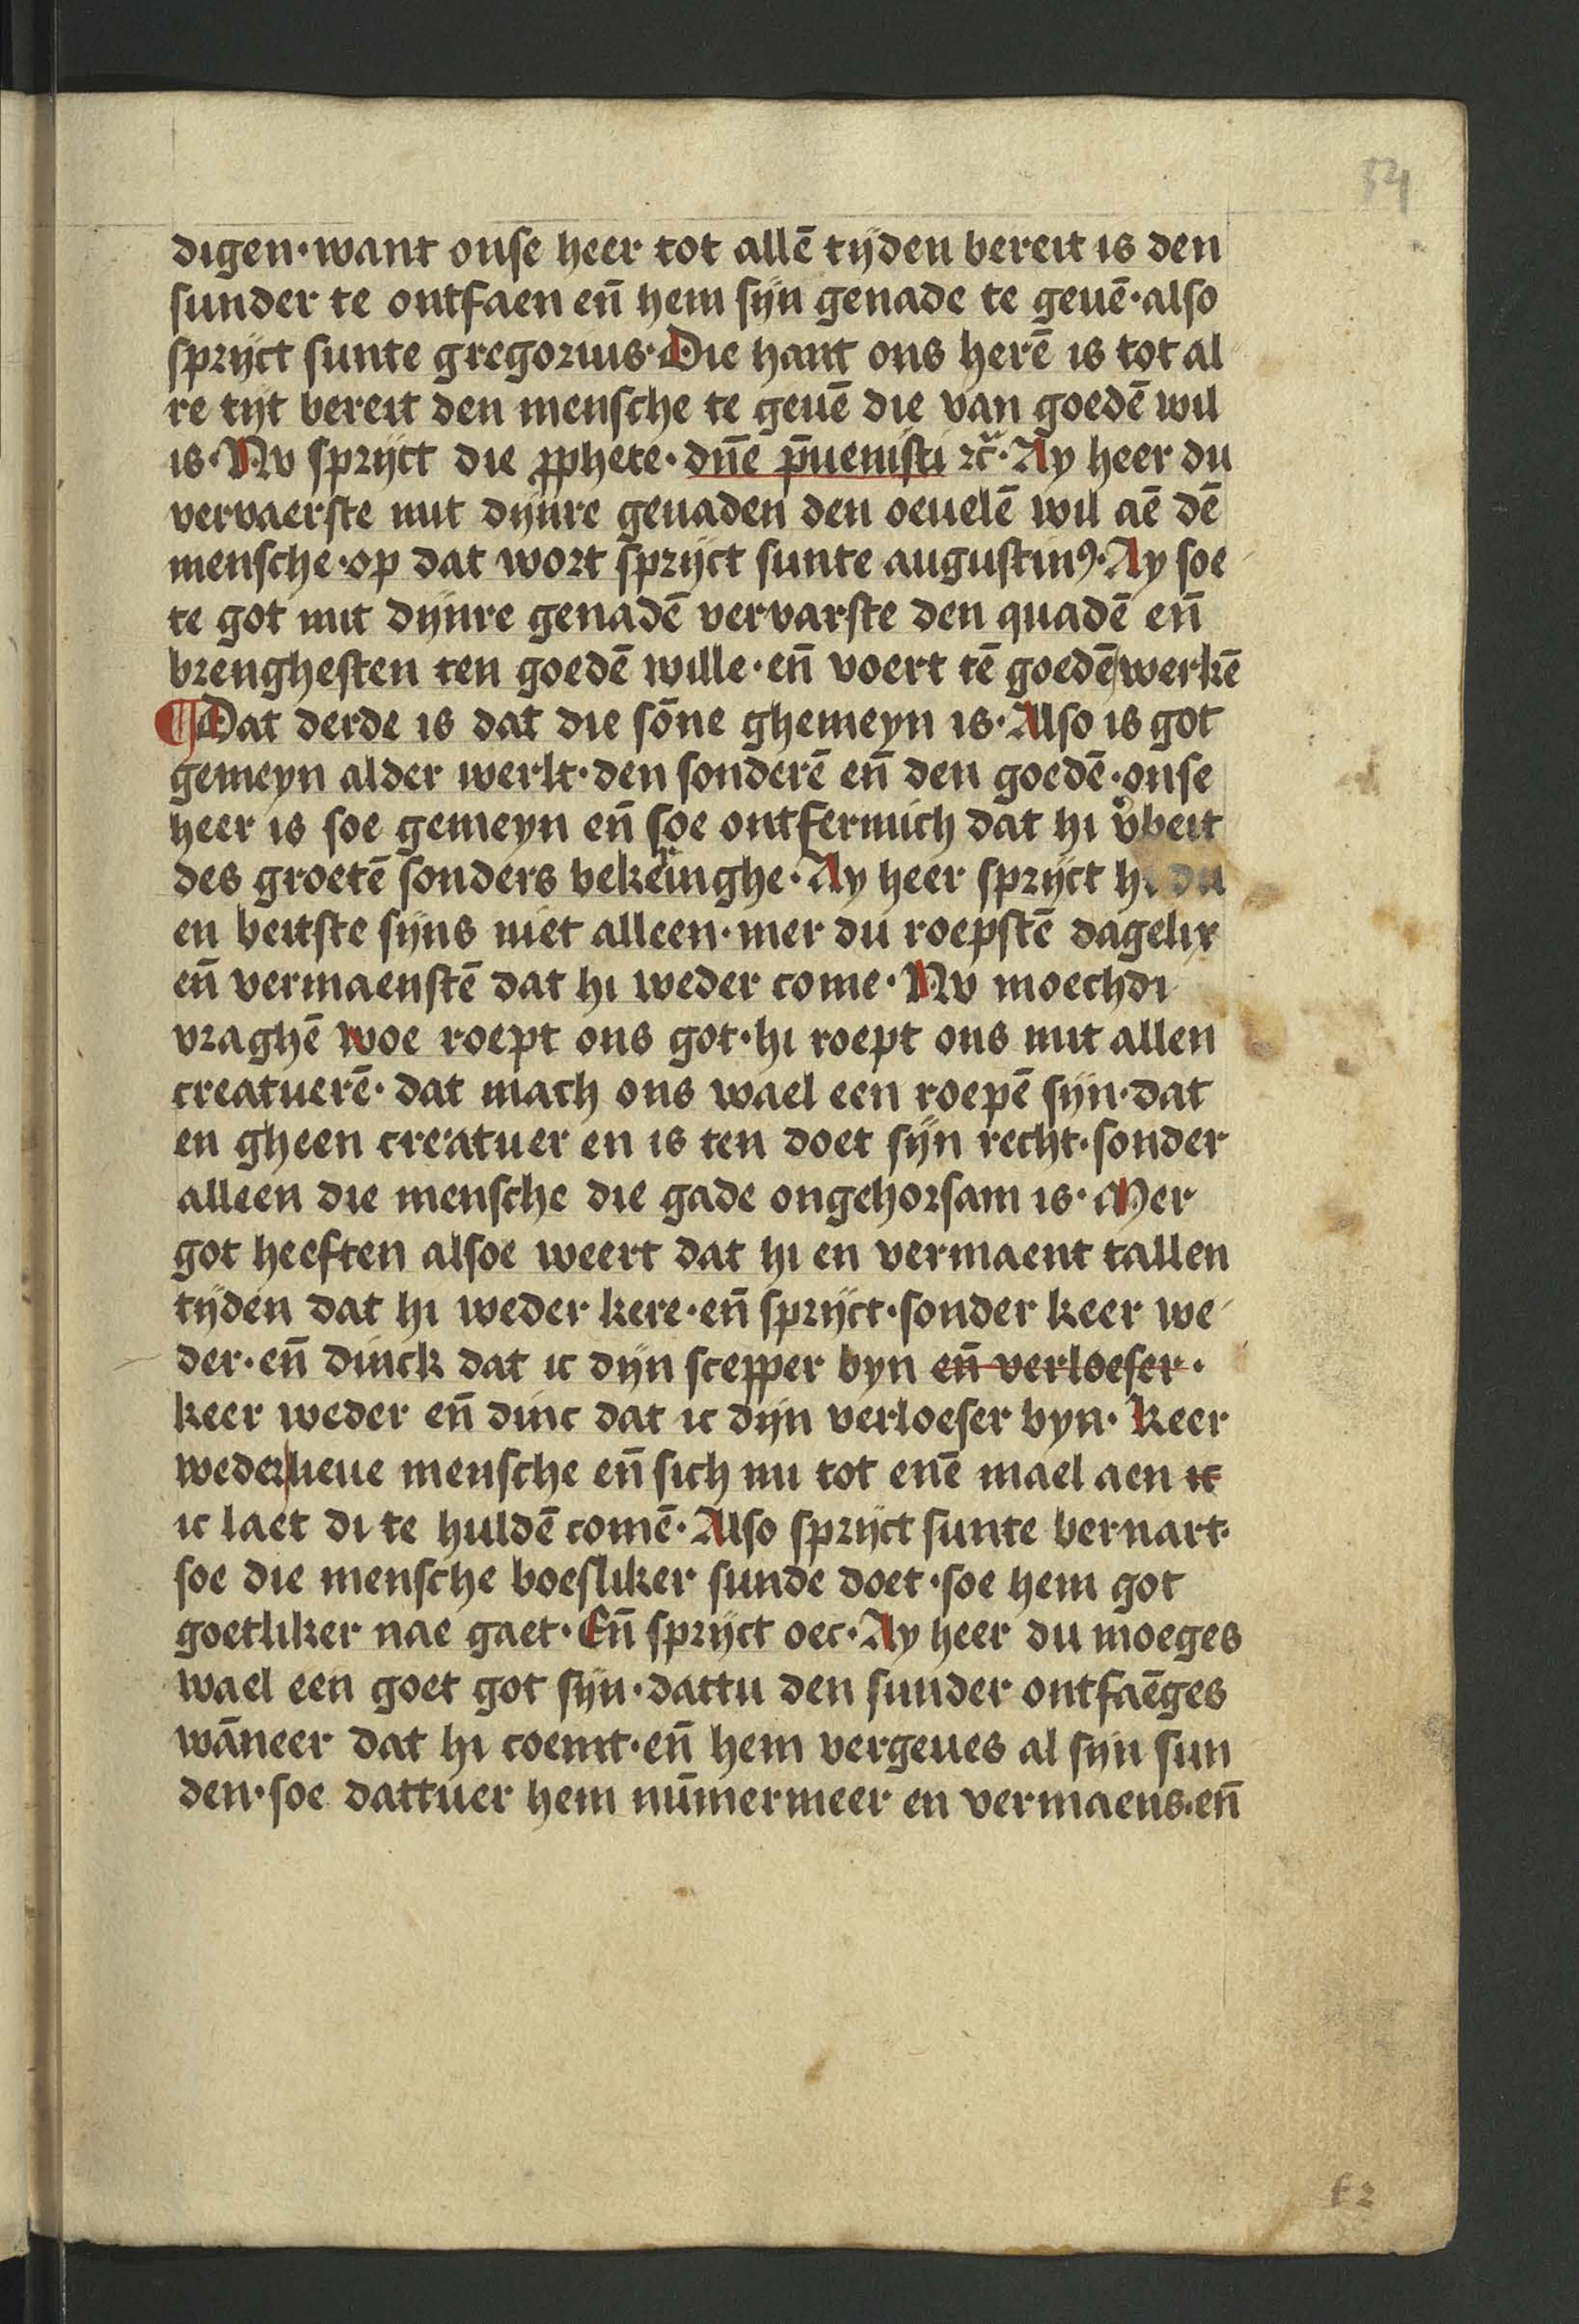 54
digen·want onse heer tot allē tijden bereit is den
sunder te ontfaen en̄ hem sijn genade te geuē·also
sprijct sunte gregorius·Die hant ons herē is tot al
re tijt bereit den mensche te geuē die van goedē wil
is·Nv sprijct die ꝓphete·dn̄e p̄uenisti ⁊c̄·Ay heer du
vervaerste mit dijnre genaden den oeuelē wil aē dē
mensche·op dat wort sprijct sunte augustinꝯ·Ay soe
te got mit dijnre genadē vervarste den quadē en̄
brenghesten ten goedē wille·en̄ voert tē goedē werkē
¶Dat derde is dat die sōne ghemeyn is·Also is got
gemeyn alder werlt·den sonderē en̄ den goedē·onse
heer is soe gemeyn en̄ soe ontfermich dat hi v̓beit
des groetē sonders bekeringhe·Ay heer sprijct hi du
en beitste sijns niet alleen·mer du roepstē dagelix
en̄ vermaenstē dat hi weder come·Nv moechdi
vraghē woe roept ons got·hi roept ons mit allen
creatuerē·dat mach ons wael een roepē sijn·dat
en gheen creatuer en is ten doet sijn recht·sonder
alleen die mensche die gade ongehorsam is·Mer
got heeften alsoe weert dat hi en vermaent tallen
tijden dat hi weder kere·en̄ sprijct·sonder keer we
der·en̄ dinck dat ic dijn scepper byn en̄ verloeser·
keer weder en̄ dinc dat ic dijn verloeser byn·Keer
weder lieue mensche en̄ sich nu tot enē mael aen ic
ic laet di te huldē comē·Also sprijct sunte bernart·
soe die mensche boesliker sunde doet·soe hem got
goetliker nae gaet·En̄ sprijct oec·Ay heer du moeges
wael een goet got sijn·dattu den sunder ontfaēges
wāneer dat hi coemt·en̄ hem vergeues al sijn sun
den·soe dattuer hem nūmermeer en vermaens·en̄
f2